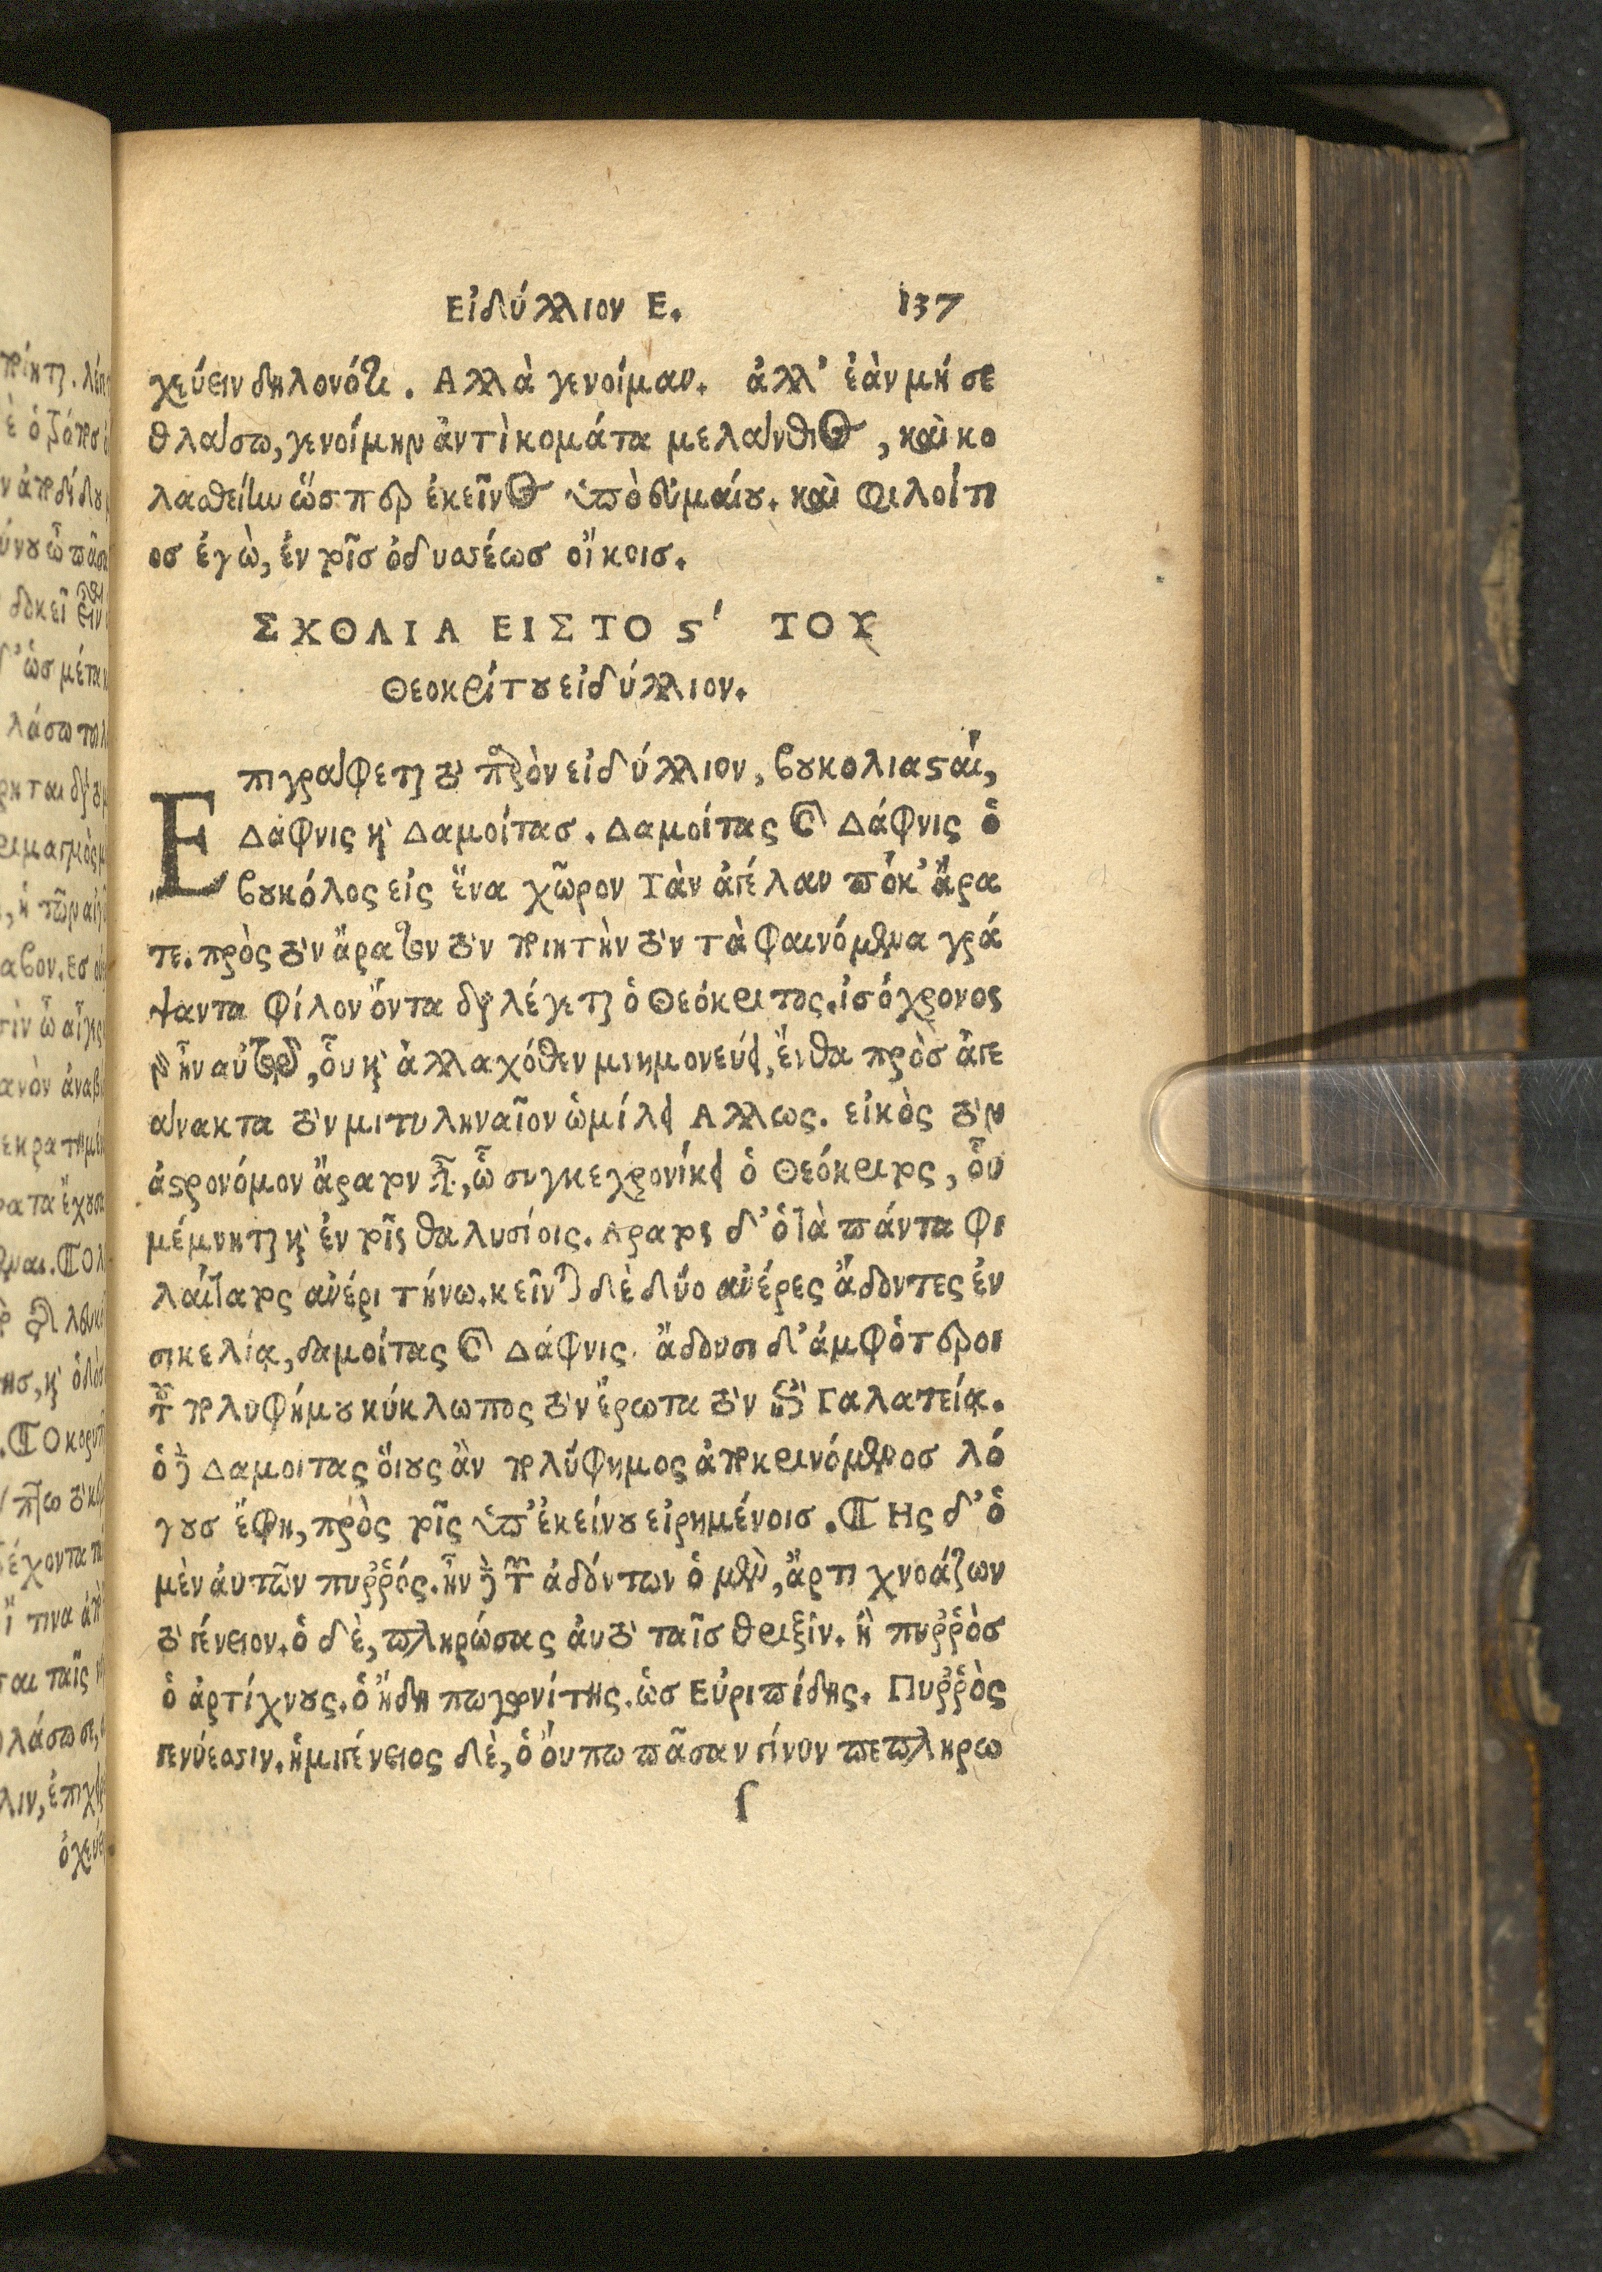 Εἰδύλλιον Ε. 137
χεύειν δηλονότι. Αλλὰ γενοίμαν. ἀλλ' ἐὰν μή σε
θλάσω, γενοίμην ἀντὶ κομάτα μελάνθιος, καὶ κο
λαθείην ὥσπερ ἐκεῖνος ὑπὸ εὐμαίου. καὶ φιλοίτι
ος ἐγὼ, ἐν τοῖς ὀδυσσέως οἴκοις.
ΣΧΟΛΙΑ ΕΙΣ ΤΟ ϛ' ΤΟΥ
Θεοκρίτου εἰδύλλιον.
Επιγράφεται τὸ παρὸν εἰδύλλιον, βουκολιασταί,
Δάφνις καὶ Δαμοίτας. Δαμοίτας καὶ Δάφνις ὁ
βουκόλος εἰς ἕνα χῶρον Τὰν ἀγέλαν πόκ' ἄρα
τε. πρὸς τὸν ἄρατον τὸν ποιητὴν τὸν τὰ φαινόμενα γρά
ψαντα φίλον ὄντα διαλέγεται ὁ Θεόκριτος. ἰσόχρονος
γὰρ ἦν αὐτοῦ, οὗ καὶ ἀλλαχόθεν μνημονεύει, ἔνθα πρὸς ἄγε
άνακτα τὸν μιτυληναῖον ὡμίλει Αλλως. εἰκὸς τὸν
ἀστρονόμον ἄρατον εἶναι, ᾧ συγκεχρονίκει ὁ Θεόκριτος, οὗ
μέμνηται καὶ ἐν τοῖς θαλυσίοις. Αρατος δ' ὁ τὰ πάντα φι
λαίτατος ἀνέρι τήνω. κεῖνται δὲ δύο ἀνέρες ἄδοντες ἐν
σικελίᾳ, δαμοίτας καὶ Δάφνις. ἄδουσι δ' ἀμφότεροι
τοῦ πολυφήμου κύκλωπος τὸν ἔρωτα τὸν τῆς Γαλατείᾳ.
ὁ δὲ Δαμοιτας ὅιους ἂν πολύφημος ἀποκρινόμενος λό
γους ἔφη, πρὸς τοῖς ὑπ' ἐκείνου εἰρημένοις. ¶ Ης δ' ὁ
μὲν αὐτῶν πυῤῥός. ἦν δὲ τῶν ἀδόντων ὁ μὲν, ἄρτι χνοάζων
τὸ γένειον. ὁ δὲ, πληρώσας αὐτὸ ταῖς θριξίν. ἢ πυῤῥὸς
ὁ ἀρτίχνους. ὁ ἤδη πωγωνίτης. ὡς Εὐριπίδης. Πυῤῥὸς
γενύεσσιν. ἡμιγένειος δὲ, ὁ ὄυπω πᾶσαν γένυν πεπληρω
ſ